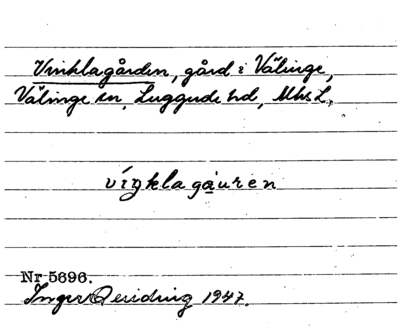 Vinklagården, gård i Välinge,
Välinge sn, Luggude hd, Mhs L.
víŋkla ga̍uren
Nr 5696.
Inger 1947.